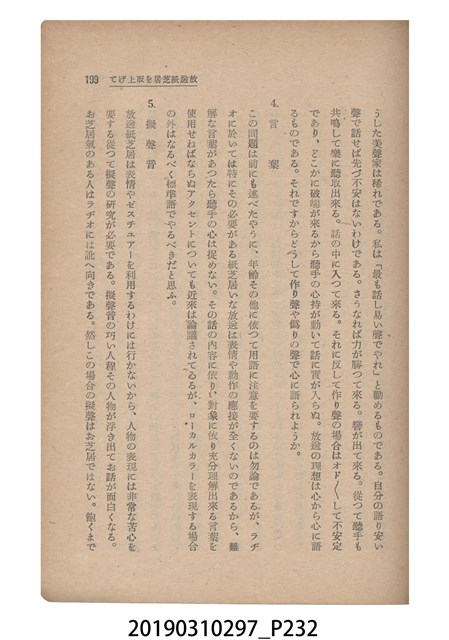 放送紙芝居を取上げて　199
うした美聲家は稀れである。私は「最も話し易い聲でやれ」と勸めるものである。自分の語り安い
聲で話せば先づ不安はないわけである。さうなれば力が勝つて來る。響が出て來る。從つて聽手も
共鳴して樂に聽取出來る。話の中に入つて來る。それに反して作り聲の場合はオド〳〵して不安定
であり、どこかに破端が來るから聽手の心持が動いて話に實が入らぬ。放送の理想は心から心に語
るものである。それですからどうして作り聲や僞りの聲で心に語られようか。
4. 言　葉
この問題は前にも述べたやうに、年齡その他に依つて用語に注意を要するのは勿論であるが、ラヂ
オに於いては特にその必要がある紙芝居いな放送は表情や動作の應接が全くないのであるから、難
解な言葉があつたら聽手の心は捉めない。その話の內容に依り、對象に依り充分理解出來る言葉を
使用せねばならぬアクセントについても近來は論議されてゐるが、ローカルカラーを表現する場合
の外はなるべく標準語でやるべきだと思ふ。
5. 擬聲音
放送紙芝居は表情やゼスチュアーを利用するわけには行かないから、人物の表現には非常な苦心を
要する從つて擬聲の研究が必要である。擬聲音の巧い人程その人物が浮き出てお話が面白くなる。
お芝居氣のある人はラヂオには訛へ向きである。然しこの場合の擬聲はお芝居ではない。飽くまで
20190310297_P232